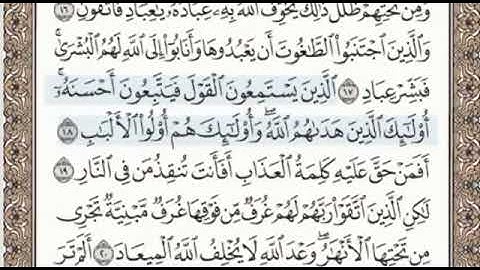 وَمِن تَحْتِهِمْ ظُلَلٌ ذَٰلِكَ يُخَوِّفُ ٱللَّهُ بِهِۦ عِبَادَهُۥ يَٰعِبَادِ فَٱتَّقُونِ ١٦
وَٱلَّذِينَ ٱجْتَنَبُوا۟ ٱلطَّٰغُوتَ أَن يَعْبُدُوهَا وَأَنَابُوٓا۟ إِلَى ٱللَّهِ لَهُمُ ٱلْبُشْرَىٰ ۚ
فَبَشِّرْ عِبَادِ ١٧ ٱلَّذِينَ يَسْتَمِعُونَ ٱلْقَوْلَ فَيَتَّبِعُونَ أَحْسَنَهُۥٓ ۚ
أُو۟لَٰٓئِكَ ٱلَّذِينَ هَدَىٰهُمُ ٱللَّهُ ۖ وَأُو۟لَٰٓئِكَ هُمْ أُو۟لُوا۟ ٱلْأَلْبَٰبِ ١٨
أَفَمَنْ حَقَّ عَلَيْهِ كَلِمَةُ ٱلْعَذَابِ أَفَأَنتَ تُنقِذُ مَن فِى ٱلنَّارِ ١٩
لَٰكِنِ ٱلَّذِينَ ٱتَّقَوْا۟ رَبَّهُمْ لَهُمْ غُرَفٌ مِّن فَوْقِهَا غُرَفٌ مَّبْنِيَّةٌ تَجْرِى
مِن تَحْتِهَا ٱلْأَنْهَٰرُ ۖ وَعْدَ ٱللَّهِ لَا يُخْلِفُ ٱللَّهُ ٱلْمِيعَادَ ٢٠ أَلَمْ تَرَ